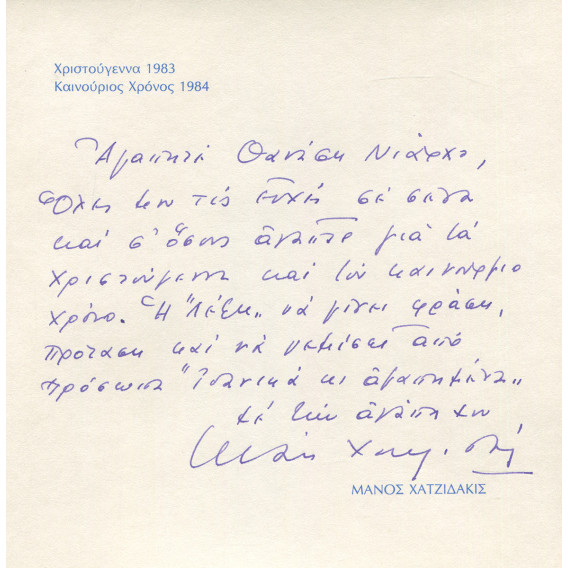 Χριστούγεννα 1983
Καινούριος Χρόνος 1984
Ἀγαπητέ Θανάση Νιάρχο,
Ὅλες μου τίς εὐχές σέ σένα
καί σ' ὅσους ἀγαπᾶς γιά τά
Χριστούγεννα καί τόν καινούργιο
χρόνο. Ἡ "Λέξη" νά γίνει φράση,
πρόταση καί νά γεμίσει ἀπό
πρόσωπα "ἰδανικά κι ἀγαπημένα"
Μέ τήν ἀγάπη μου
Μάνος Χατζιδάκις
ΜΑΝΟΣ ΧΑΤΖΙΔΑΚΙΣ